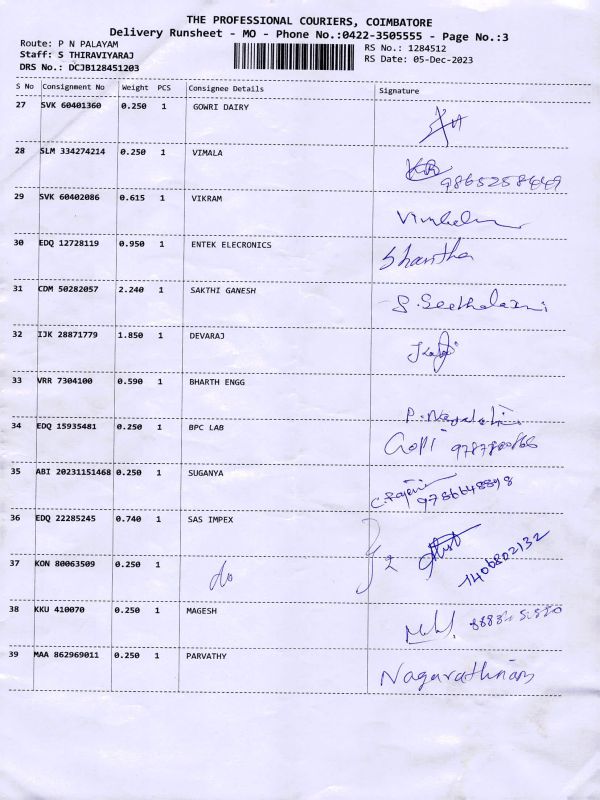 THE PROFESSIONAL COURIERS, COIMBATORE
Delivery Runsheet - MO - Phone No.:0422-3505555 - Page No.:3
Route: P N PALAYAM
RS No.: 1284512
Staff: S THIRAVIYARAJ
RS Date: 05-Dec-2023
DRS No.: DCJB128451203
S No Consignment No Weight PCS Consignee Details Signature
27 SVK 60401360 0.250 1 GOWRI DAIRY
28 SLM 334274214 0.250 1 VIMALA
29 SVK 60402086 0.615 1 VIKRAM
30 EDQ 12728119 0.950 1 ENTEK ELECRONICS Shantha
31 CDM 50282057 2.240 1 SAKTHI GANESH
32 IJK 28871779 1.850 1 DEVARAJ
33 VRR 7304100 0.590 1 BHARTH ENGG
34 EDQ 15935481 0.250 1 BPC LAB Gopi
35 ABI 20231151468 0.250 1 SUGANYA 9786648898
36 EDQ 22285245 0.740 1 SAS IMPEX
37 KON 80063509 0.250 1 do } 2 1406802132
38 KKU 410070 0.250 1 MAGESH
39 MAA 862969011 0.250 1 PARVATHY Nagarathnam